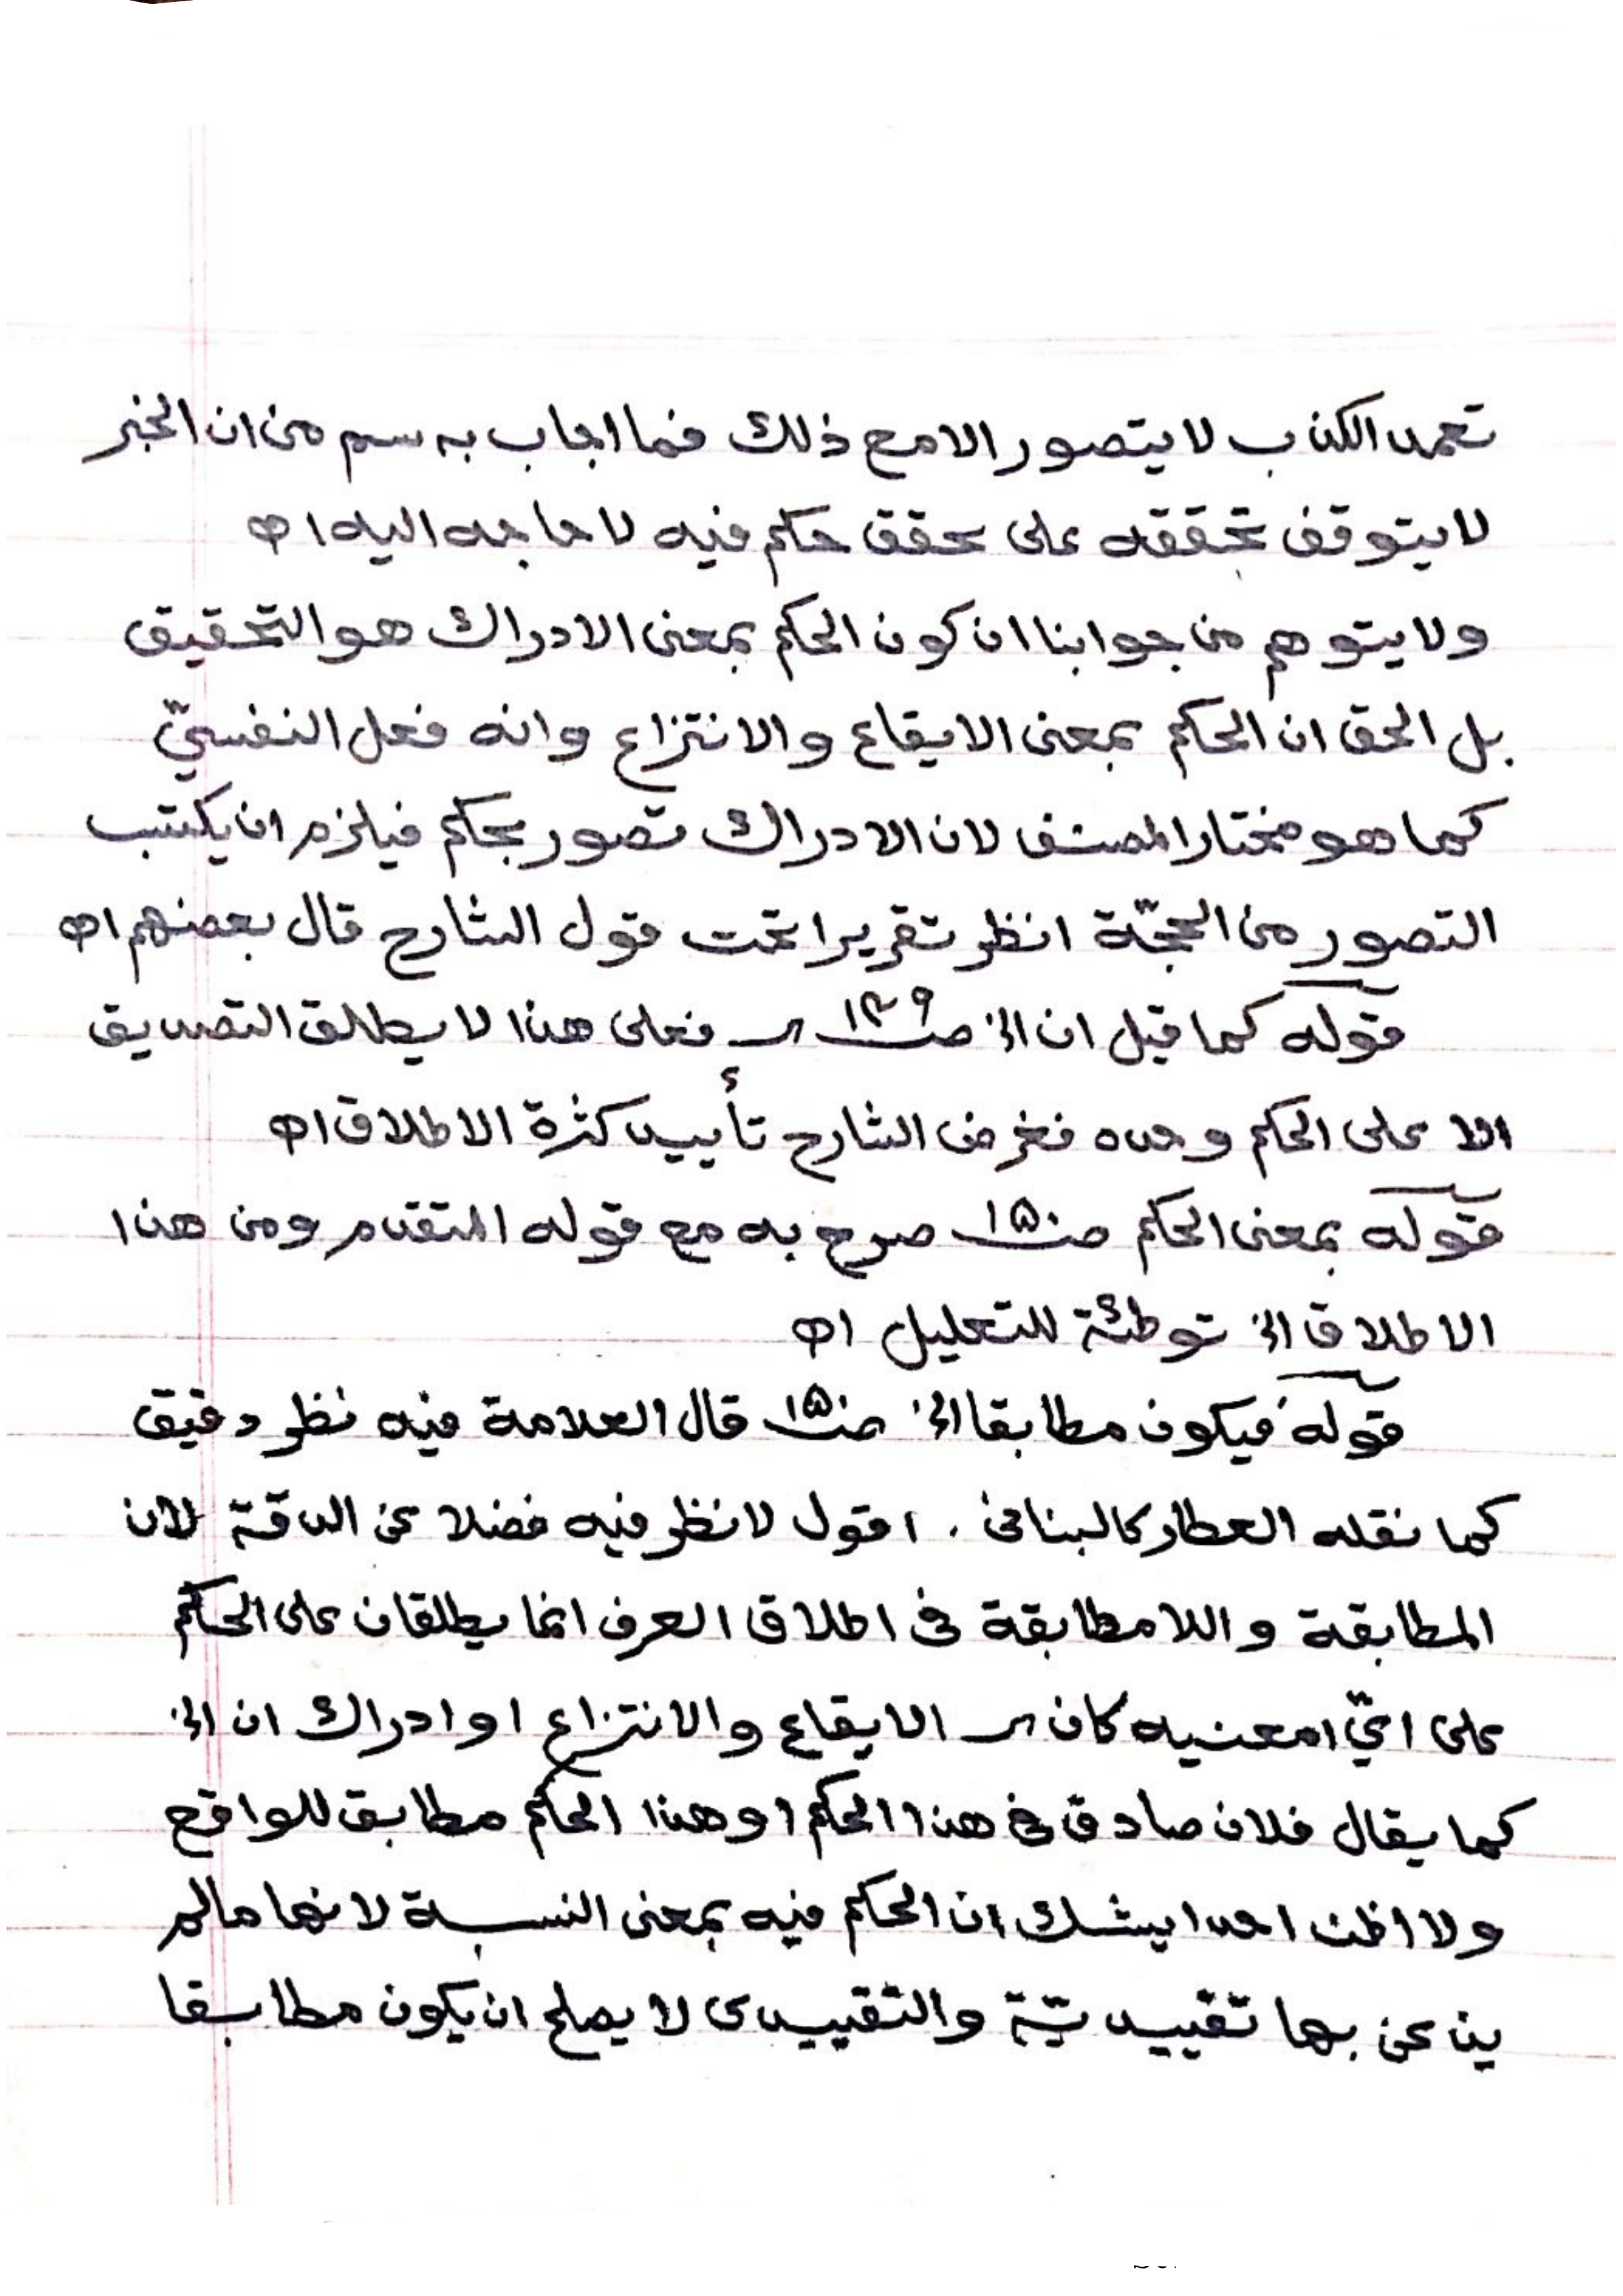 تعمد الكذب لا يتصور الا مع ذلك فما اجاب به سم من ان الخبر
لا يتوقف تحققه على تحقق حكم فيه لا حاجه اليه اه
ولا يتوهم من جوابنا ان كون الحكم بمعنى الادراك هو التحقيق
بل الحق ان الحكم بمعنى الايقاع والانتزاع وانه فعل النفسيّ
كما هو مختار المصنف لان الادراك تصور بحكم فيلزم ان يكتسب
التصور من الحجّة انظر تقريرا تحت قول الشارح قال بعضهم اه
قوله كما قيل ان الخ صـ١٤٩ــ فعلى هذا لا يطلق التصديق
الا على الحكم وحده فغرض الشارح تأييد كثرة الاطلاق اه
قوله بمعنى الحكم صـ١٥٠ صرح به مع قوله المتقدم ومن هذا
الاطلاق الخ توطئة للتعليل اه
قوله فيكون مطابقا الخ صـ١٥٠ قال العلامة فيه نظر دقيق
كما نقله العطار كالبنانى . اقول لا نظر فيه فضلا عن الدقة لان
المطابقة واللامطابقة فى اطلاق العرف انما يطلقان على الحكم
على ايّ امعنيه كان الايقاع والانتزاع او ادراك ان الخ
كما يقال فلان صادق فى هذا الحكم او هذا الحكم مطابق للواقع
ولا اظن احدا يشك ان الحكم فيه بمعنى النسبة لانها مالم
يذعن بها تقييديّة والتقييدى لا يصلح ان يكون مطابقا